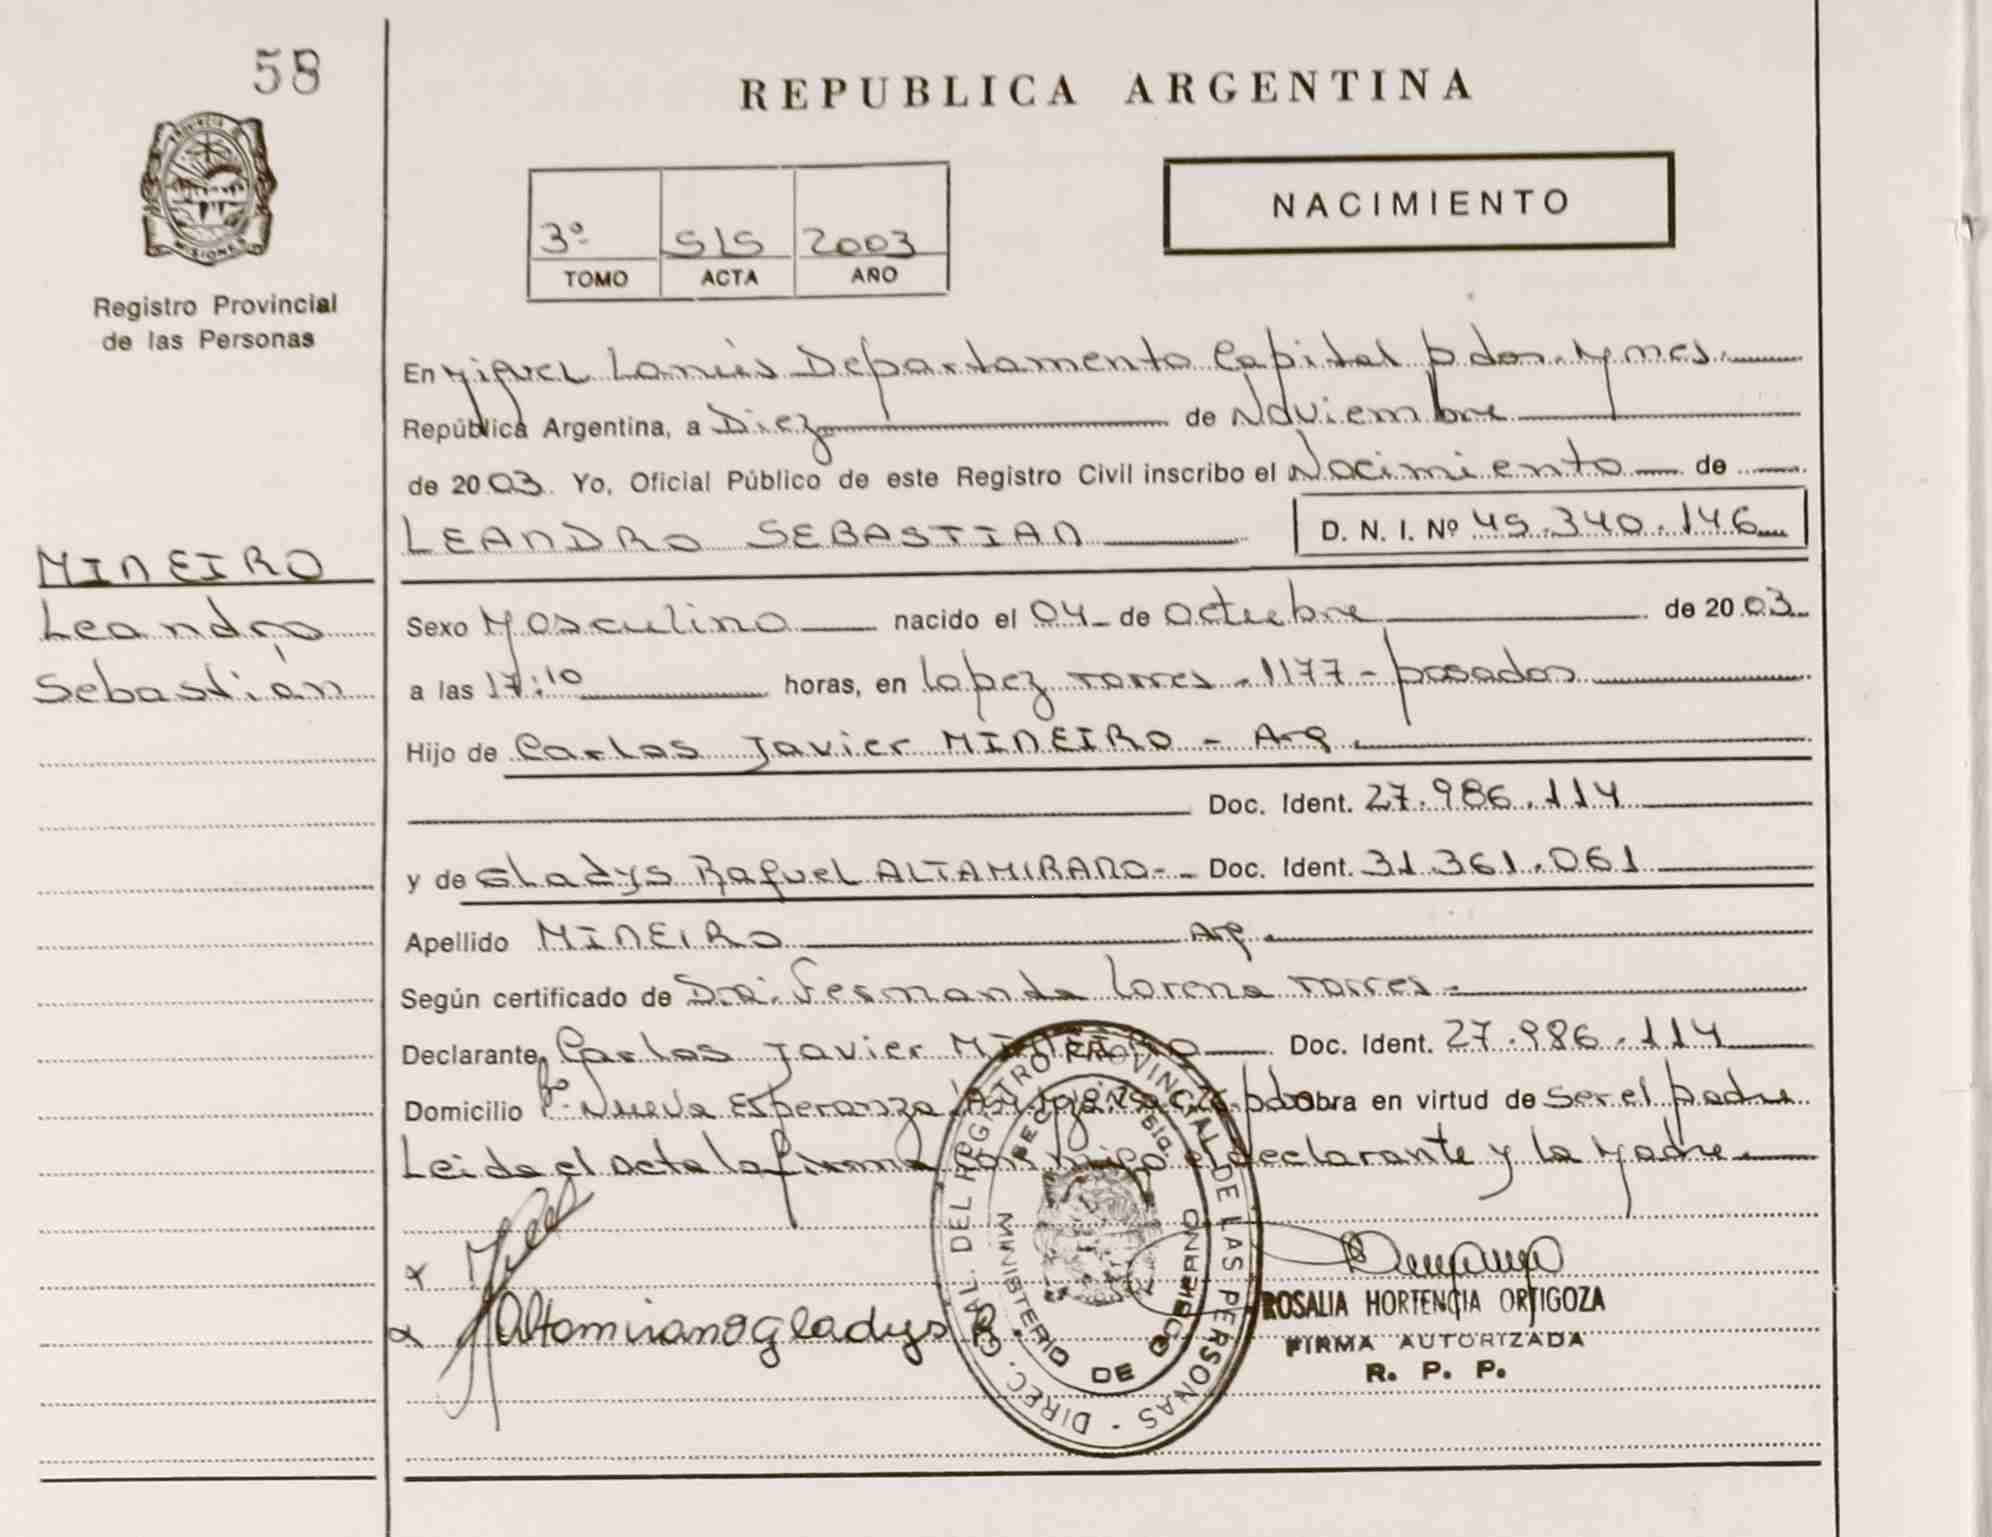 58
PROVINCIA DE
MISIONES
Registro Provincial
de las Personas
REPUBLICA ARGENTINA
NACIMIENTO
3º 515 2003
TOMO ACTA AÑO
En Miguel Lanús Departamento Capital pdas. Mnes.
República Argentina, a Diez de Noviembre
de 2003. Yo, Oficial Público de este Registro Civil inscribo el Nacimiento de
LEANDRO SEBASTIAN D. N. I. Nº 45.340.146
MINEIRO
Leandro
Sebastián
Sexo Masculino nacido el 04 de octubre de 2003
a las 17:10 horas, en Lopez Torres - 1177 - posadas
Hijo de Carlos Javier MINEIRO - Arg.
Doc. Ident. 27.986.114
y de Gladys Raquel ALTAMIRANO - Doc. Ident. 31.361.061
Apellido MINEIRO Arg.
Según certificado de Dra. Fernanda Lorena Torres.
Declarante, Carlos Javier MINEIRO Doc. Ident. 27.986.114
Domicilio Bº Nueva Esperanza pdas obra en virtud de ser el padre
Leida el acta la firma conmigo el declarante y la Madre
Altamirano gladys R.
DIREC. GRAL. DEL REGISTRO PROVINCIAL DE LAS PERSONAS
MINISTERIO DE GOBIERNO
ROSALIA HORTENCIA ORTIGOZA
FIRMA AUTORIZADA
R. P. P.